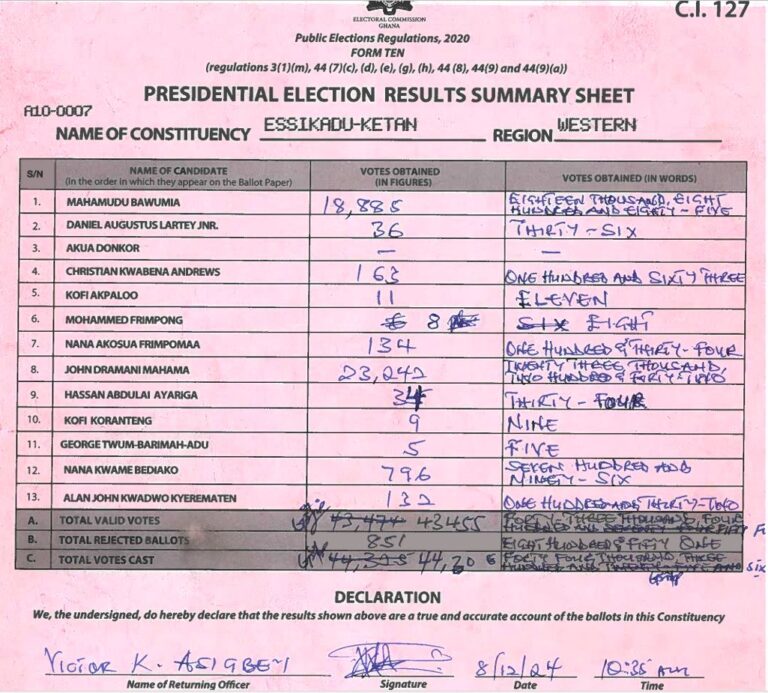 ELECTORAL COMMISSION
GHANA
C.I. 127
Public Elections Regulations, 2020
FORM TEN
(regulations 3(1)(m), 44 (7)(c), (d), (e), (g), (h), 44 (8), 44(9) and 44(9)(a))
PRESIDENTIAL ELECTION RESULTS SUMMARY SHEET
A10-0007
NAME OF CONSTITUENCY ESSIKADU-KETAN REGION WESTERN
S/N NAME OF CANDIDATE VOTES OBTAINED VOTES OBTAINED (IN WORDS)
(In the order in which they appear on the Ballot Paper) (IN FIGURES)
1. MAHAMUDU BAWUMIA 18,885 EIGHTEEN THOUSAND, EIGHT
HUNDRED AND EIGHTY-FIVE
2. DANIEL AUGUSTUS LARTEY JNR. 36 THIRTY-SIX
3. AKUA DONKOR — —
4. CHRISTIAN KWABENA ANDREWS 163 ONE HUNDRED AND SIXTY THREE
5. KOFI AKPALOO 11 ELEVEN
6. MOHAMMED FRIMPONG 8 SIX EIGHT
7. NANA AKOSUA FRIMPOMAA 134 ONE HUNDRED & THIRTY-FOUR
8. JOHN DRAMANI MAHAMA 23,242 TWENTY THREE THOUSAND,
TWO HUNDRED & FORTY TWO
9. HASSAN ABDULAI AYARIGA 34 THIRTY-FOUR
10. KOFI KORANTENG 9 NINE
11. GEORGE TWUM-BARIMAH-ADU 5 FIVE
12. NANA KWAME BEDIAKO 796 SEVEN HUNDRED AND
NINETY-SIX
13. ALAN JOHN KWADWO KYEREMATEN 132 ONE HUNDRED AND THIRTY-TWO
A. TOTAL VALID VOTES 43,474 43455 FORTY THREE THOUSAND, FOUR
HUNDRED AND FIFTY
B. TOTAL REJECTED BALLOTS 851 EIGHT HUNDRED & FIFTY ONE
C. TOTAL VOTES CAST 44,30 6 FORTY FOUR THOUSAND THREE
HUNDRED AND SIX
DECLARATION
We, the undersigned, do hereby declare that the results shown above are a true and accurate account of the ballots in this Constituency
VICTOR K. ASIGBEY 8/12/24 10:35 AM
Name of Returning Officer Signature Date Time